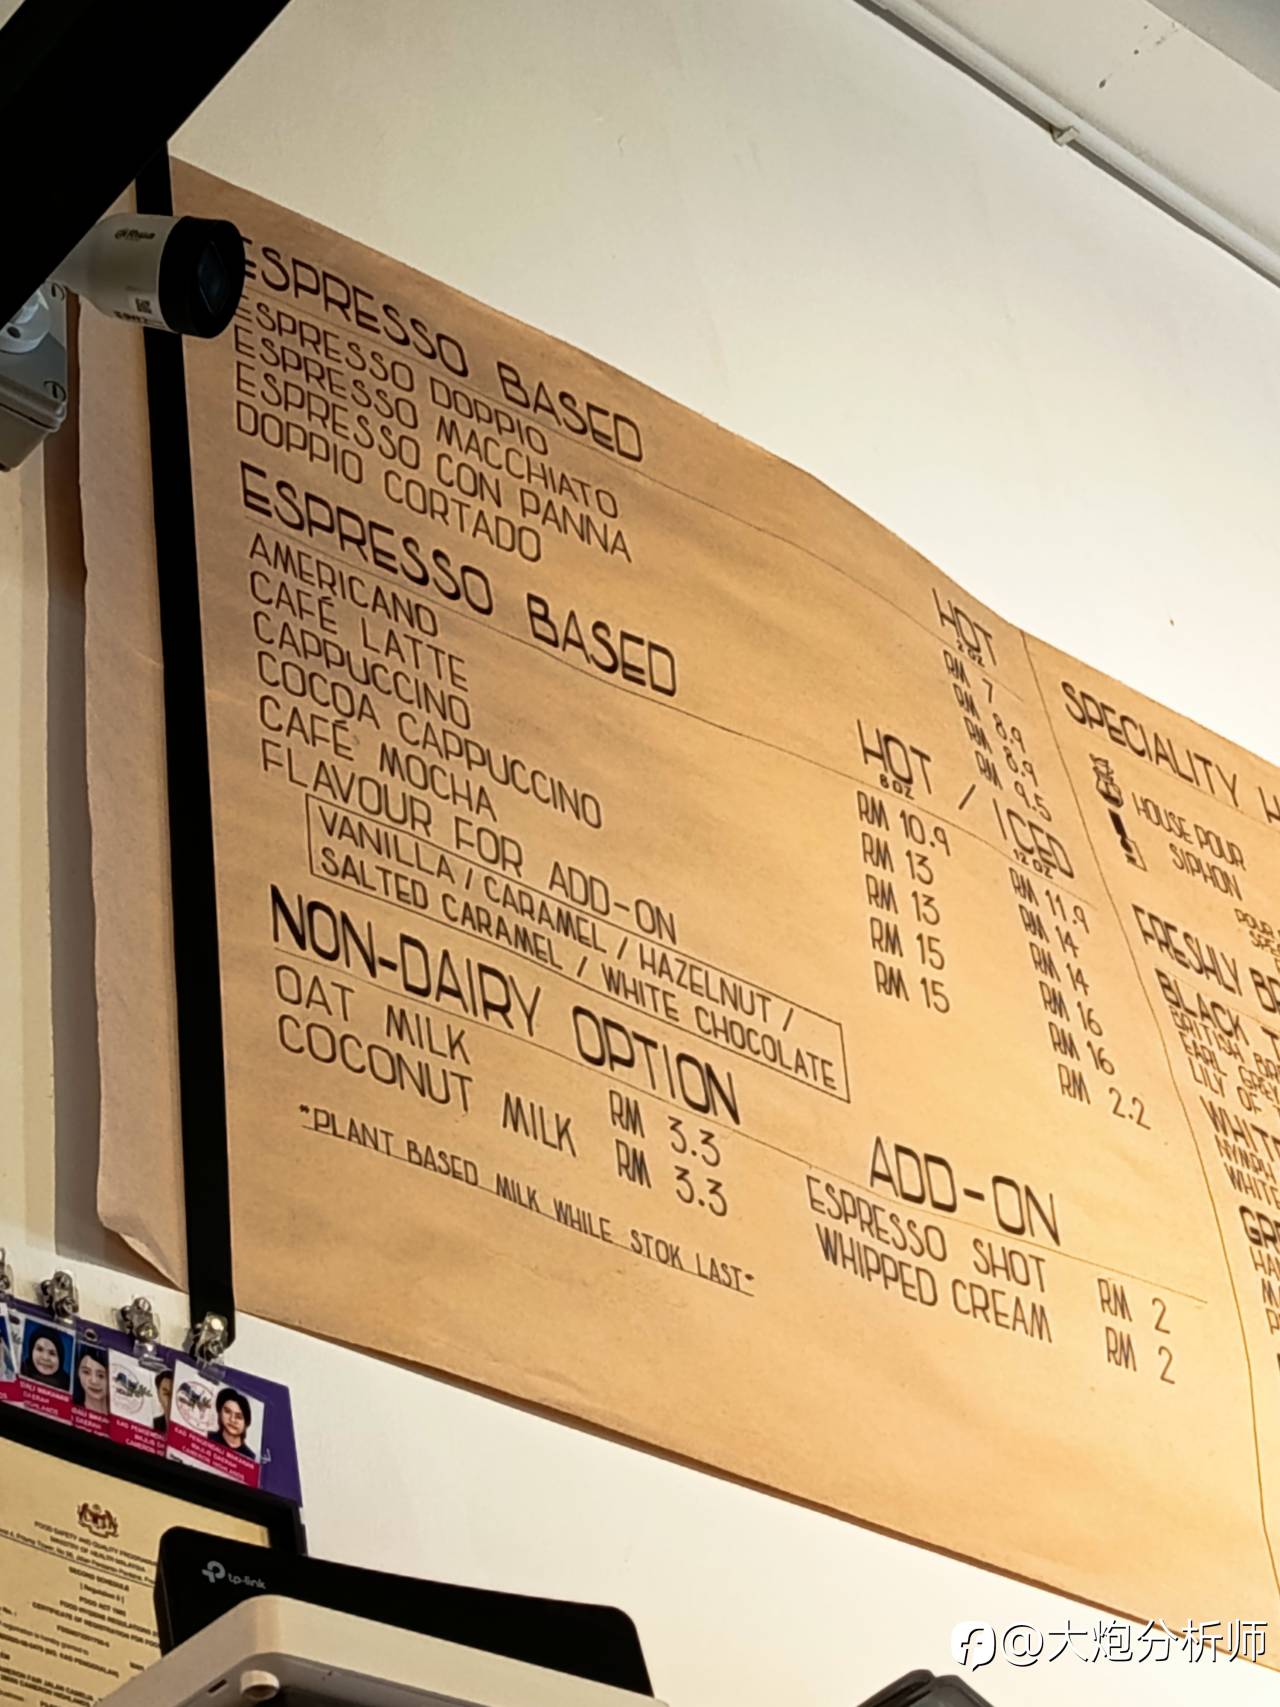 ESPRESSO BASED
HOT
2 OZ
ESPRESSO DOPPIO RM 7
ESPRESSO MACCHIATO RM 8.9
ESPRESSO CON PANNA RM 8.9
DOPPIO CORTADO RM 9.5
ESPRESSO BASED
HOT / ICED
8 OZ 12 OZ
AMERICANO RM 10.9 RM 11.9
CAFÉ LATTE RM 13 RM 14
CAPPUCCINO RM 13 RM 14
COCOA CAPPUCCINO RM 15 RM 16
CAFÉ MOCHA RM 15 RM 16
FLAVOUR FOR ADD-ON RM 2.2
VANILLA / CARAMEL / HAZELNUT /
SALTED CARAMEL / WHITE CHOCOLATE
NON-DAIRY OPTION
OAT MILK RM 3.3
COCONUT MILK RM 3.3
*PLANT BASED MILK WHILE STOK LAST*
ADD-ON
ESPRESSO SHOT RM 2
WHIPPED CREAM RM 2
SPECIALITY
HOUSE POUR
SIPHON
FRESHLY
BLACK
BRITISH
EARL GREY
LILY OF
WHITE
alhua
tp-link
FOOD ACT 1983
@大炮分析师